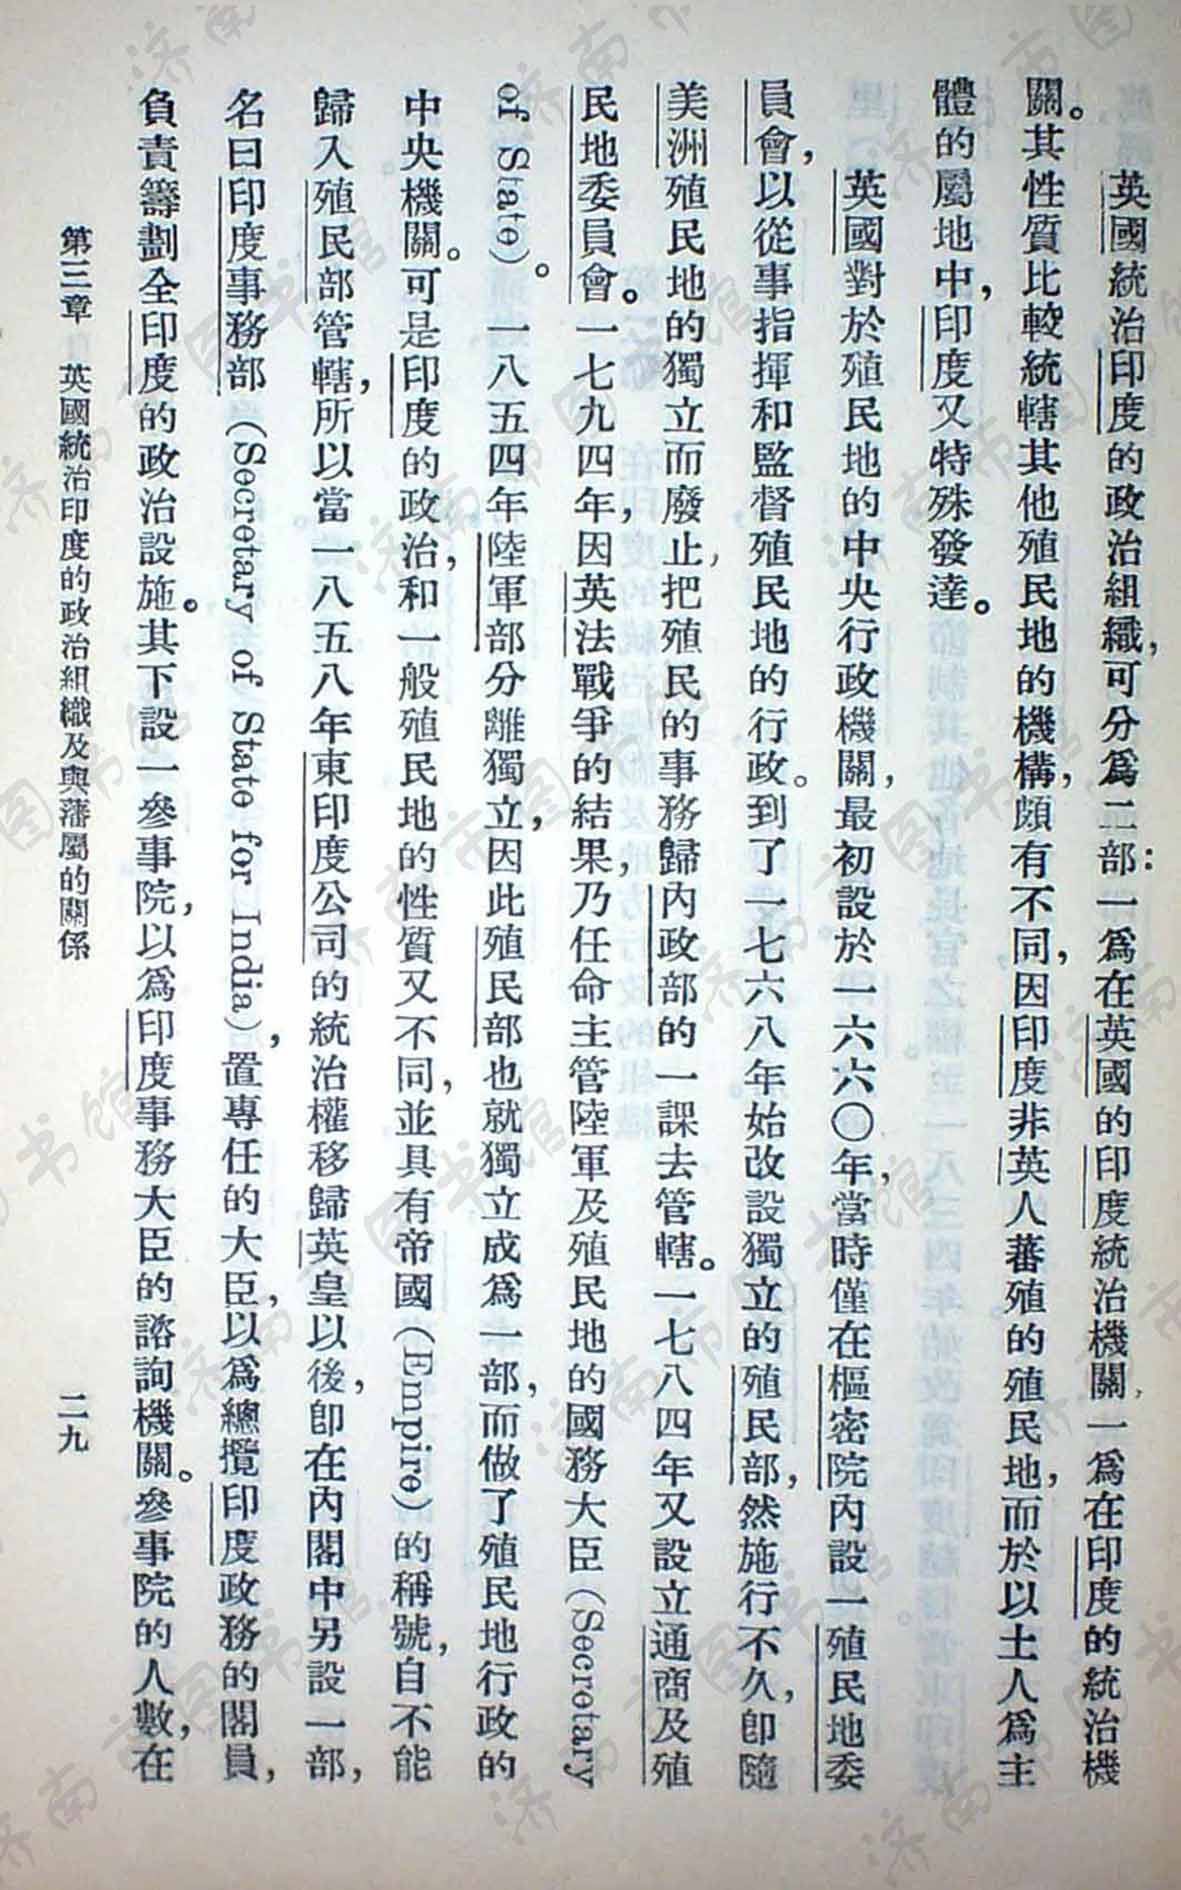 英國統治印度的政治組織,可分爲二部:一爲在英國的印度統治機關,一爲在印度的統治機
關。其性質比較統轄其他殖民地的機構,頗有不同,因印度非英人蕃殖的殖民地,而於以土人爲主
體的屬地中,印度又特殊發達。
英國對於殖民地的中央行政機關,最初設於一六六〇年,當時僅在樞密院內設一殖民地委
員會,以從事指揮和監督殖民地的行政。到了一七六八年始改設獨立的殖民部,然施行不久,即隨
美洲殖民地的獨立而廢止,把殖民的事務歸內政部的一課去管轄。一七八四年又設立通商及殖
民地委員會。一七九四年,因英法戰爭的結果,乃任命主管陸軍及殖民地的國務大臣(Secretary
of State)。一八五四年陸軍部分離獨立,因此殖民部也就獨立成爲一部,而做了殖民地行政的
中央機關。可是印度的政治,和一般殖民地的性質又不同,並具有帝國(Empire)的稱號,自不能
歸入殖民部管轄,所以當一八五八年東印度公司的統治權移歸英皇以後,即在內閣中另設一部,
名曰印度事務部(Secretary of State for India),置專任的大臣,以爲總攬印度政務的閣員,
負責籌劃全印度的政治設施。其下設一參事院,以爲印度事務大臣的諮詢機關。參事院的人數,在
第三章 英國統治印度的政治組織及與藩屬的關係
二九
濟南市图书馆